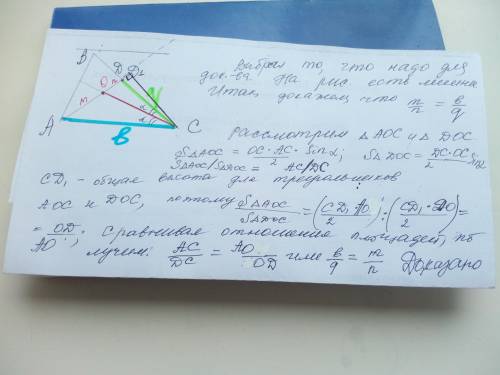 B
D D₁
O n
y
M
α
α
A
в
C
Выбрал то, что надо для
док-ва. На рис есть
Итак, докажем, что m/n = в/q
Рассмотрим △ AOC и △ DOC
S△AOC = OC·AC·Sinα/2; S△DOC = DC·OC/2 Sinα
S△AOC/S△DOC = AC/DC
CD₁ - общая высота для треугольников
AOC и DOC, поэтому S△AOC/S△DOC = (CD₁·AO/2) : (CD₁·DO/2) =
= OD/AO; Сравнивая отношение площадей, по
лучим: AC/DC = AO/OD или в/q = m/n Доказано